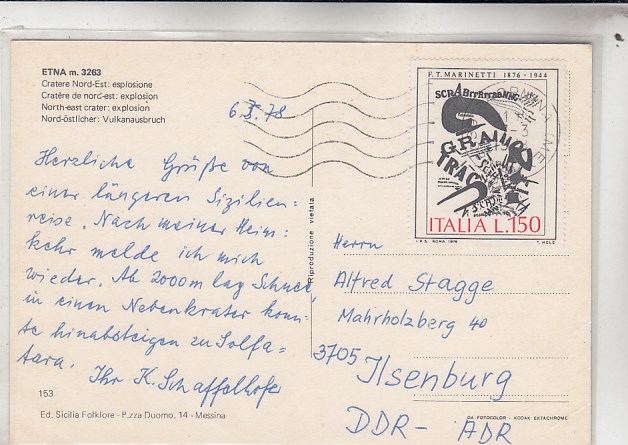 ETNA m. 3263
Cratere Nord-Est: esplosione
Cratère de nord-est: explosion
North-east crater: explosion
Nord-östlicher: Vulkanausbruch
6.X.78
Herzliche Grüße von
einer längeren Sizilien-
reise. Nach meiner Heim-
kehr melde ich mich
wieder. Ab 2000m lag Schnee,
in einen Nebenkrater konn-
te hinabsteigen zu Solfa-
tara.
Ihr K. Schaffelhofer
153
Ed. Sicilia Folklore - P.zza Duomo, 14 - Messina
Riproduzione vietata
F.T. MARINETTI 1876 - 1944
SCRABrrRrraaNNG
GRAAC
TRAC
ITALIA L.150
I.P.S. ROMA 1976
T. MELE
Herrn
Alfred Stagge
Mahrholzberg 40
3705 Ilsenburg
DDR - ADR
DA FOTOCOLOR - KODAK EKTACHROME